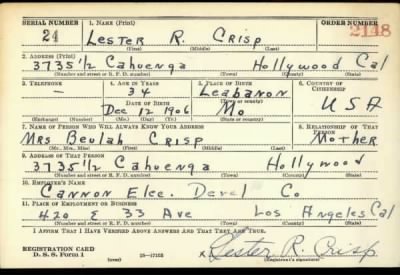 SERIAL NUMBER 1. NAME (Print) ORDER NUMBER
24 LESTER R. CRISP 2148
(First) (Middle) (Last)
2. ADDRESS (Print)
3735 1/2 Cahuenga Hollywood Cal
(Number and street or R. F. D. number) (Town) (County) (State)
3. TELEPHONE 4. AGE IN YEARS 5. PLACE OF BIRTH 6. COUNTRY OF CITIZENSHIP
— 34 Leabanon
DATE OF BIRTH (Town or county)
Dec 12 1906 Mo USA
(Exchange) (Number) (Mo.) (Day) (Yr.) (State or country)
7. NAME OF PERSON WHO WILL ALWAYS KNOW YOUR ADDRESS 8. RELATIONSHIP OF THAT PERSON
Mrs Beulah CRISP Mother
(Mr., Mrs., Miss) (First) (Middle) (Last)
9. ADDRESS OF THAT PERSON
3735 1/2 Cahuenga Hollywood
(Number and street or R. F. D. number) (Town) (County) (State)
10. EMPLOYER'S NAME
CANNON Elec. Devel Co
11. PLACE OF EMPLOYMENT OR BUSINESS
420 E 33 Ave Los Angeles Cal
(Number and street or R. F. D. number) (Town) (County) (State)
I AFFIRM THAT I HAVE VERIFIED ABOVE ANSWERS AND THAT THEY ARE TRUE.
REGISTRATION CARD
D. S. S. Form 1 (over) 16—17105 x Lester R. Crisp
(Registrant's signature)